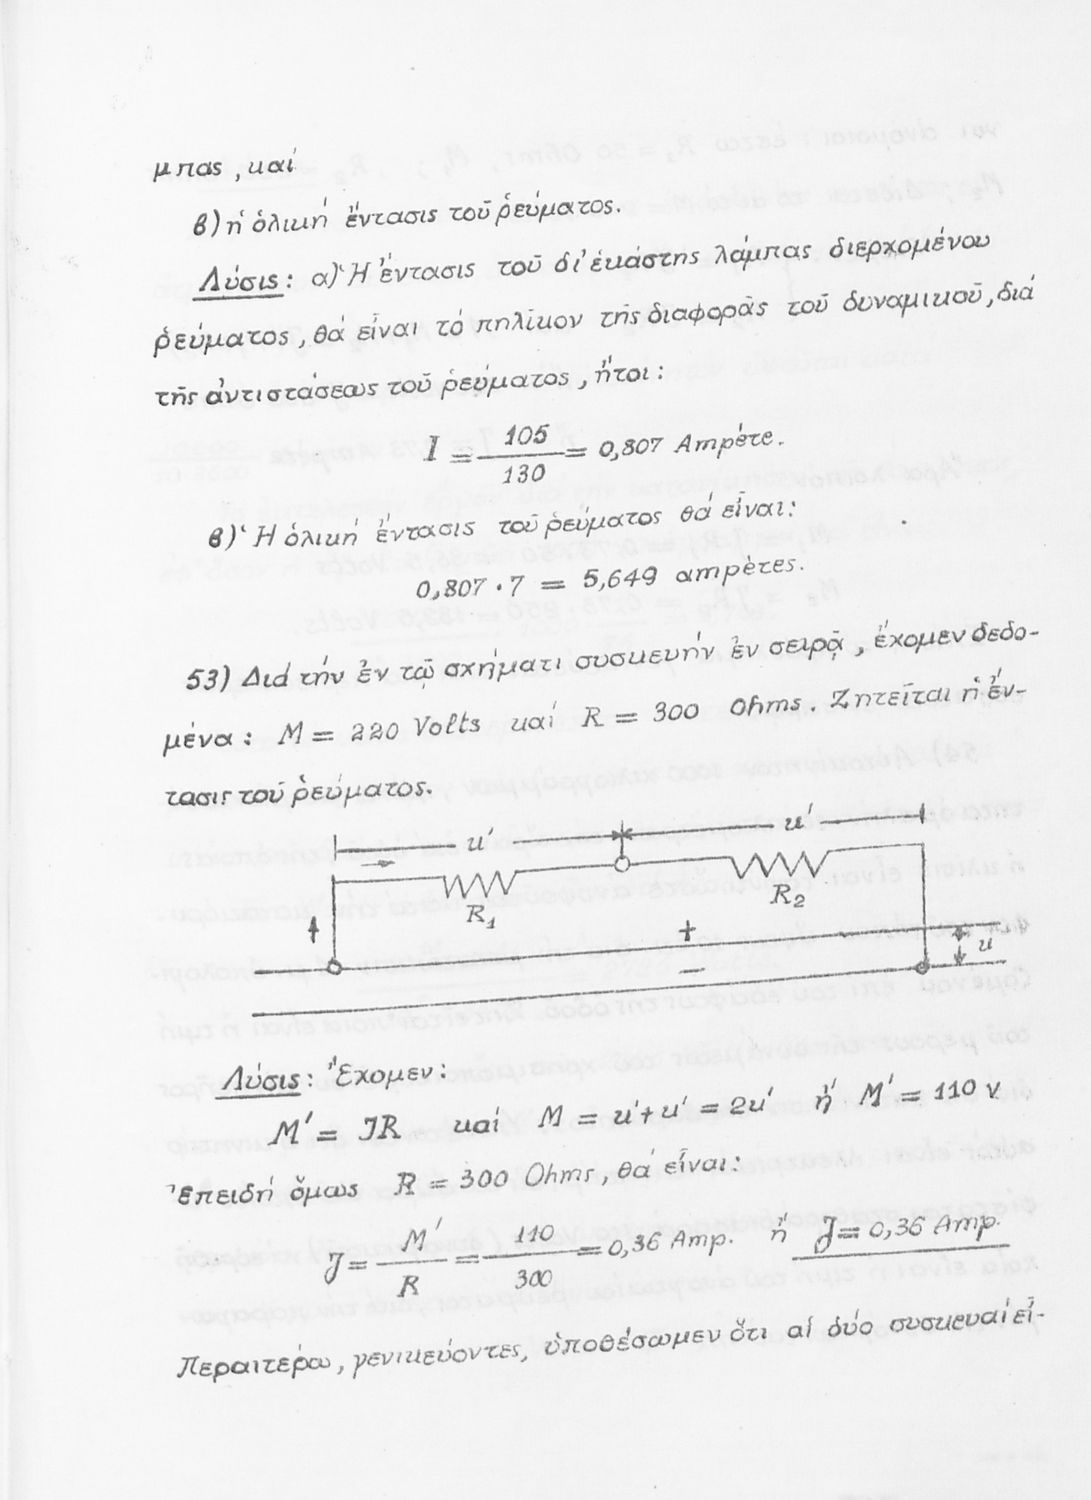 μπας, καί
β) ἡ ὁλική ἔντασις τοῦ ῥεύματος.
Λύσις: α) Ἡ ἔντασις τοῦ δι' ἑκάστης λάμπας διερχομένου
ῥεύματος, θά εἶναι τό πηλῖκον τῆς διαφορᾶς τοῦ δυναμικοῦ, διά
τῆς ἀντιστάσεως τοῦ ῥεύματος, ἤτοι:
I = 105/130 = 0,807 Ampète.
β) Ἡ ὁλική ἔντασις τοῦ ῥεύματος θά εἶναι:
0,807 · 7 = 5,649 ampètes.
53) Διά τήν ἐν τῷ σχήματι συσκευήν ἐν σειρᾷ, ἔχομεν δεδο-
μένα: M = 220 Volts καί R = 300 Ohms. Ζητεῖται ἡ ἔν-
τασις τοῦ ῥεύματος.
u' u'
R1 R2
+
u
−
Λύσις: Ἔχομεν:
M' = JR καί M = u' + u' = 2u' ἤ M' = 110 v
Ἐπειδή ὅμως R = 300 Ohms, θά εἶναι:
J = M'/R = 110/300 = 0,36 Amp. ἤ J = 0,36 Amp.
Περαιτέρω, γενικεύοντες, ὑποθέσωμεν ὅτι αἱ δύο συσκευαί εἶ-